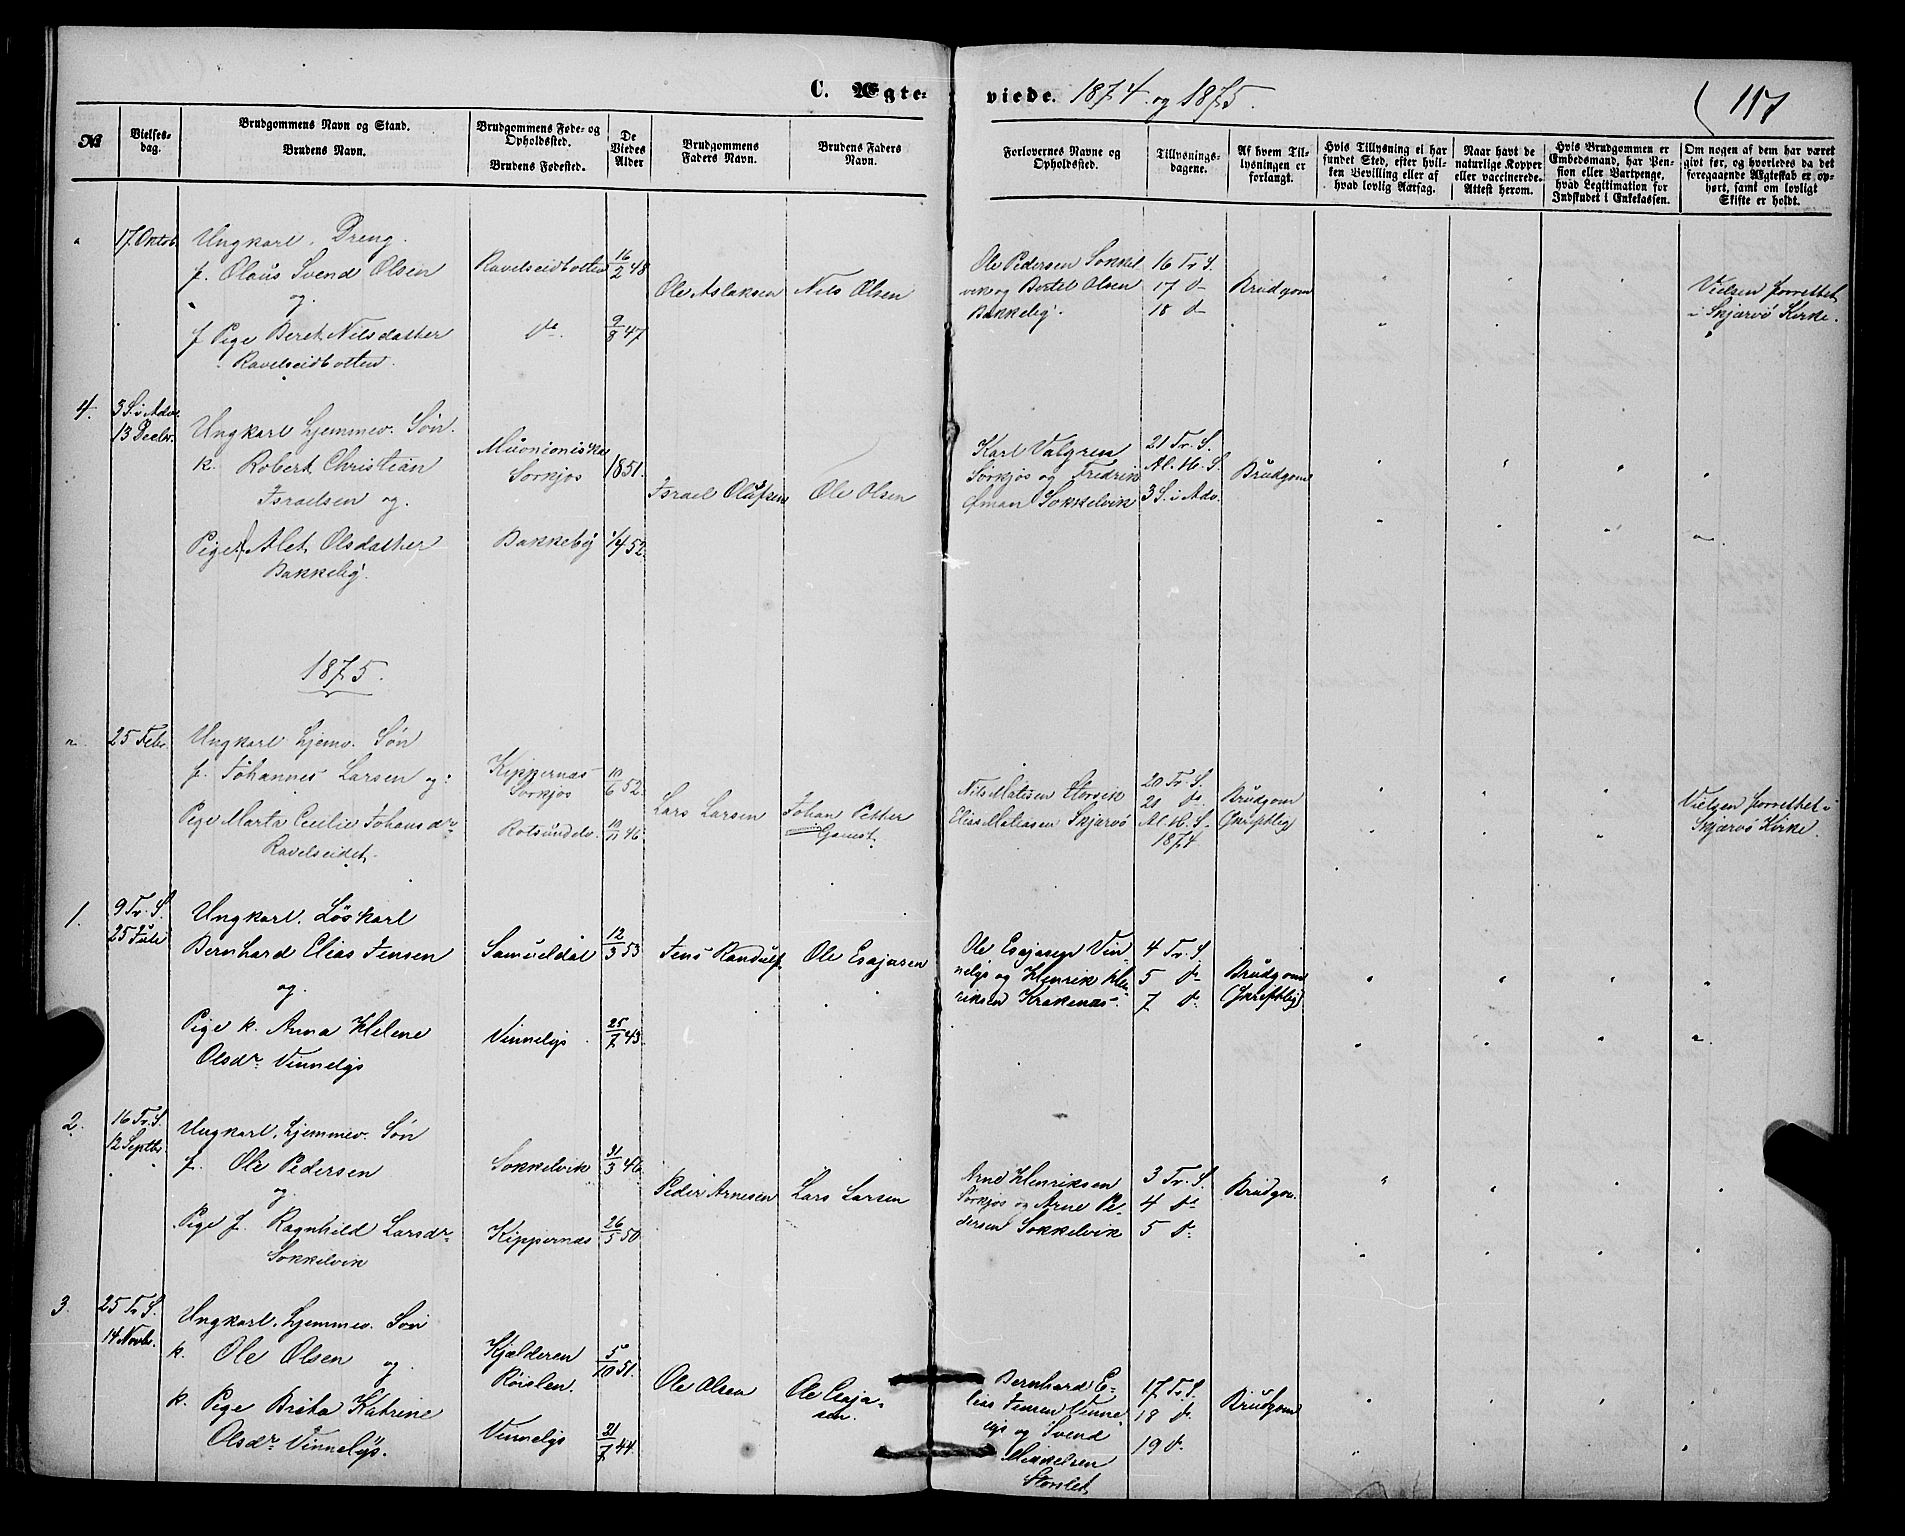 C. Ægte-
viede. 1874 og 1875.
117
No
Vielses-
dag.
Brudgommens Navn og Stand.
Brudens Navn.
Brudgommens Føde- og
Opholdsted.
Brudens Fødested.
De
Viedes
Alder
Brudgommens
Faders Navn.
Brudens Faders
Navn.
Forlovernes Navne og
Opholdssted.
Tillysnings-
dagene.
Af hvem Til-
lysningen er
forlangt.
Hvis Tillysning ei har
fundet Sted, efter hvil-
ken Bevilling eller af
hvad lovlig Aarsag.
Naar havt de
naturlige Kopper
eller vaccinerede.
Attest herom.
Hvis Brudgommen er
Embedsmand, har Pen-
sion eller Vartpenge,
hvad Legitimation for
Indskudet i Enkekassen.
Om nogen af dem har været
givt før, og hvorledes da det
foregaaende Ægteskab er op-
hørt, samt om lovligt
Skifte er holdt.
17 Oktob.
Ungkarl. Dreng.
f. Olaus Svend Olsen
og
f Pige Beret Nilsdatter
Ravelseidbotten.
Ravelseidbotten
do
16/2 48
9/3 47
Ole Aslaksen
Nils Olsen
Ole Pedersen Sokkel
vik og Bertel Olsen
Bakkeby.
16 Tr. S.
17 d
18 d
Brudgom
Vielsen forrettet
i Skjærvö Kirke.
4.
3 S. i Adv.
13 Decbr.
Ungkarl hjemmev. Søn.
k. Robert Christian
Israelsen og.
Pige Alet Olsdatter
Bakkeby.
Muonioniska
Sorkjos
Bakkeby
1851.
1/4 52.
Israel Olufsen
Ole Olsen
Karl Valgren
Sorkjos og Fredrik
Öman Sokkelvik
21 Tr. S.
Al. H. S.
3 S. i Adv.
Brudgom
1875.
25 Febr.
Ungkarl hjemv. Søn
f. Johannes Larsen og:
Pige Marta Cecilie Johansdr
Ravelseidet.
Kippernæs
Sorkjos
Rotsundelv.
10/6 52.
10/11 46.
Lars Larsen
Johan Petter
Gamst.
Nils Matisen Havnvik
Elias Mathiasen Skjærvö
20 Tr. S.
21 do
Al. H. S.
1874
Brudgom
(skriftlig)
Vielsen forrettet i
Skjærvö Kirke.
1.
9 Tr. S.
25 Juli
Ungkarl. Löskarl
Bernhard Elias Jensen
og
Pige k. Anna Helene
Olsdr Vinnelys
Samueldal
Vinnelys
12/3 53
25/7 43.
Jens Randulf
Ole Esajasen
Ole Esajasen Vin-
nelys og Henrik Hen
riksen Krakenæs.
4 Tr. S.
5 d
7 d.
Brudgom
(skriftlig)
2.
16 Tr. S.
12 Septbr.
Ungkarl. hjemmev. Søn
f. Ole Pedersen
og
Pige f. Ragnhild Larsdr
Sokkelvik
Sokkelvik
Kippernæs
31/3 46.
26/5 50
Peder Arnesen
Lars Larsen
Arne Henriksen
Sorkjos og Arne Pe-
dersen Sokkelvik
3 Tr. S.
4 do
5 d.
Brudgom.
3.
25 Tr S.
14 Novbr.
Ungkarl. hjemmev. Søn
k. Ole Olsen og.
k. Pige Brita Katrine
Olsdr Vinnelys.
Kjælderen
Röislen.
Vinnelys
5/10 51.
21/7 44.
Ole Olsen
Ole Esaja-
sen.
Bernhard E-
lias Jensen Vinne-
lys og Svend
Mikkelsen
Storslet
17 Tr S.
18 d.
19 d.
Brudgom